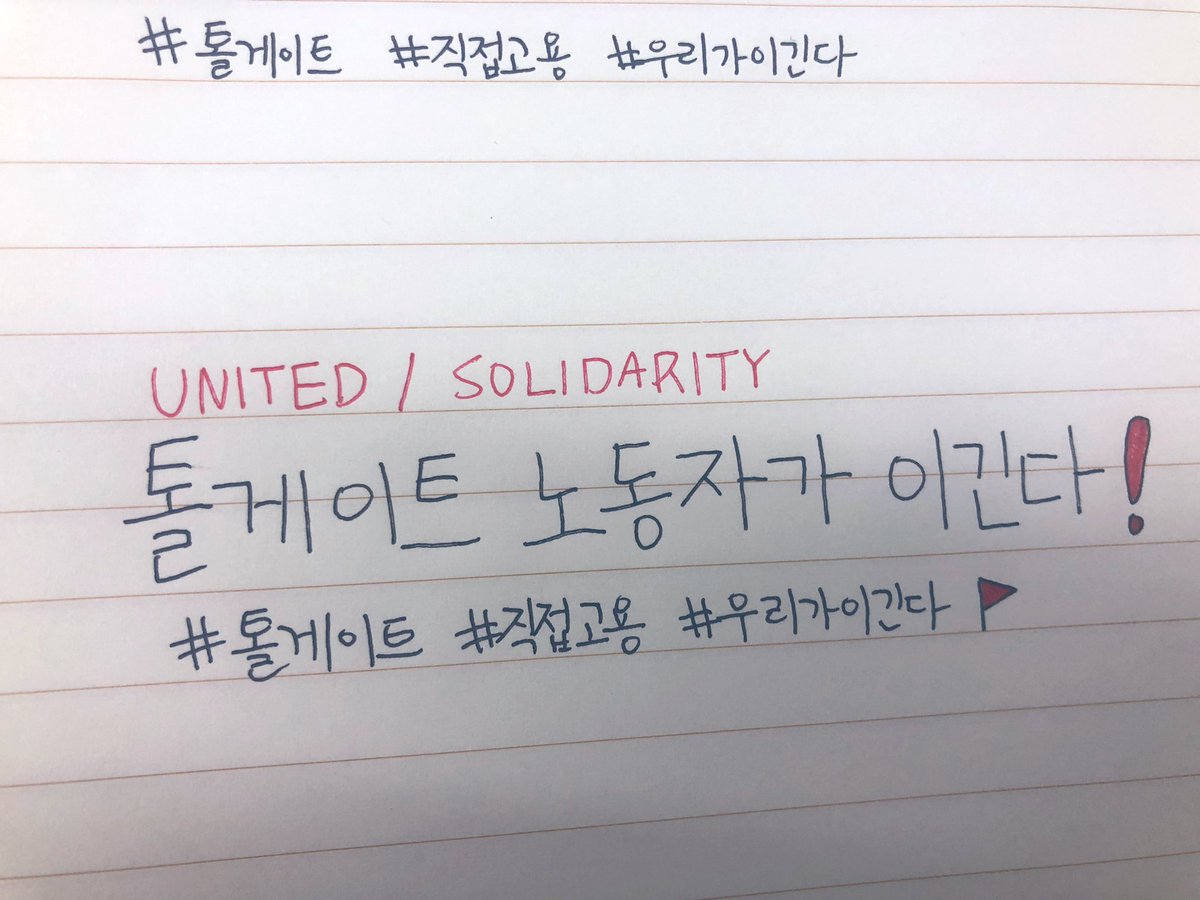 #톨게이트 #직접고용 #우리가이긴다
UNITED / SOLIDARITY
톨게이트 노동자가 이긴다!
#톨게이트 #직접고용 #우리가이긴다